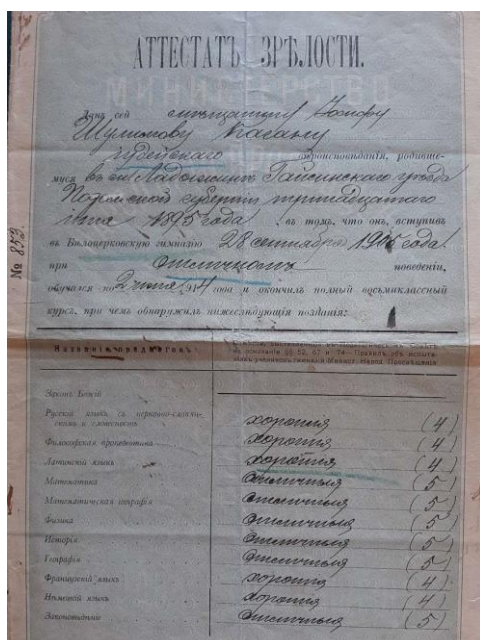 АТТЕСТАТЪ ЗРѢЛОСТИ.
МИНИСТЕРСТВО
Данъ сей мѣщанину Іосифу
Шулимову Кагану
іудейскаго вѣроисповѣданія, родивше-
муся въ м. Ладыжинѣ Гайсинскаго уѣзда
Подольской губерніи тринадцатаго
1895 года, въ томъ, что онъ, вступивъ
въ Бѣлоцерковскую гимназію 28 сентября 1905 года
при отличномъ поведеніи,
обучался по 2 іюня 1914 года и окончилъ полный восьмиклассный
курсъ, при чемъ обнаружилъ нижеслѣдующія познанія:
№ 853.
Названія предметовъ:
на основаніи §§ 52, 67 и 74 Правилъ объ испыта-
Законъ Божій
Русскій языкъ съ церковно-славян-
скимъ и словесность хорошія (4)
Философская пропедевтика хорошія (4)
Латинскій языкъ хорошія (4)
Математика отличныя (5)
Математическая географія отличныя (5)
Физика отличныя (5)
Исторія отличныя (5)
Географія отличныя (5)
Французскій языкъ хорошія (4)
Нѣмецкій языкъ хорошія (4)
Законовѣдѣніе отличныя (5)